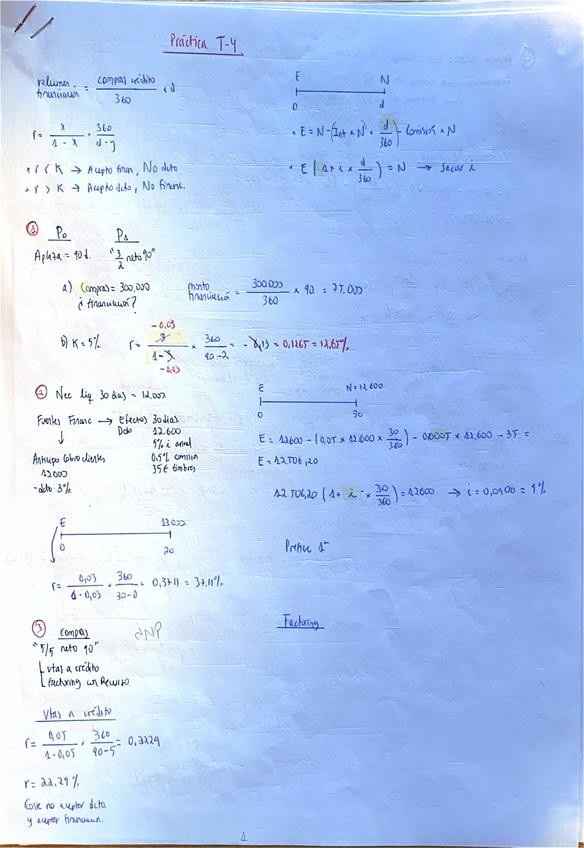 Práctica T-4
volumen financiación = compras crédito / 360 × d
r = x / 1 - x · 360 / d - y
· r < K → Acepto finan, No dcto
· r > K → Acepto dcto, No financ.
E N
0 d
· E = N - (Int × N) × d / 360 - Comisión × N
· E (1 + i × d / 360) = N → sacar i
① P0 P1
Aplaza = 90 d. "3/2 neto 90"
a) Compras = 300.000
¿ financiación?
monto financiación = 300.000 / 360 × 90 = 75.000
b) K = 5%
- 0,03
r = 3 / 1 - 3 × 360 / 90 - 2 = - 0,13 = 0,1265 = 12,65%
- 0,03
② Nec liq 30 dias = 12.000
Fuentes Financ → Efectos 30 dias
Dcto 12.600
9% i anual
0,5% comision
35€ timbres
Anticipo Cobro clientes
12000
- dcto 3%
E N = 12.600
0 30
E = 12.600 - (0,05 × 12.600 × 30 / 360) - 0,0005 × 12.600 - 35 =
E = 12.506,20
12.506,20 (1 + i × 30 / 360) = 12600 → i = 0,0900 = 9%
E 13000
0 20
Prefiere 1ª
r = 0,03 / 1 - 0,03 × 360 / 30 - 0 = 0,3711 = 37,11%
③ compras
"5/5 neto 90"
vtas a crédito
factoring con Recurso
Factoring
Vtas a crédito
r = 0,05 / 1 - 0,05 · 360 / 90 - 5 = 0,2229
r = 22,29%
Coste no aceptar dcto
y aceptar financiacion.
1